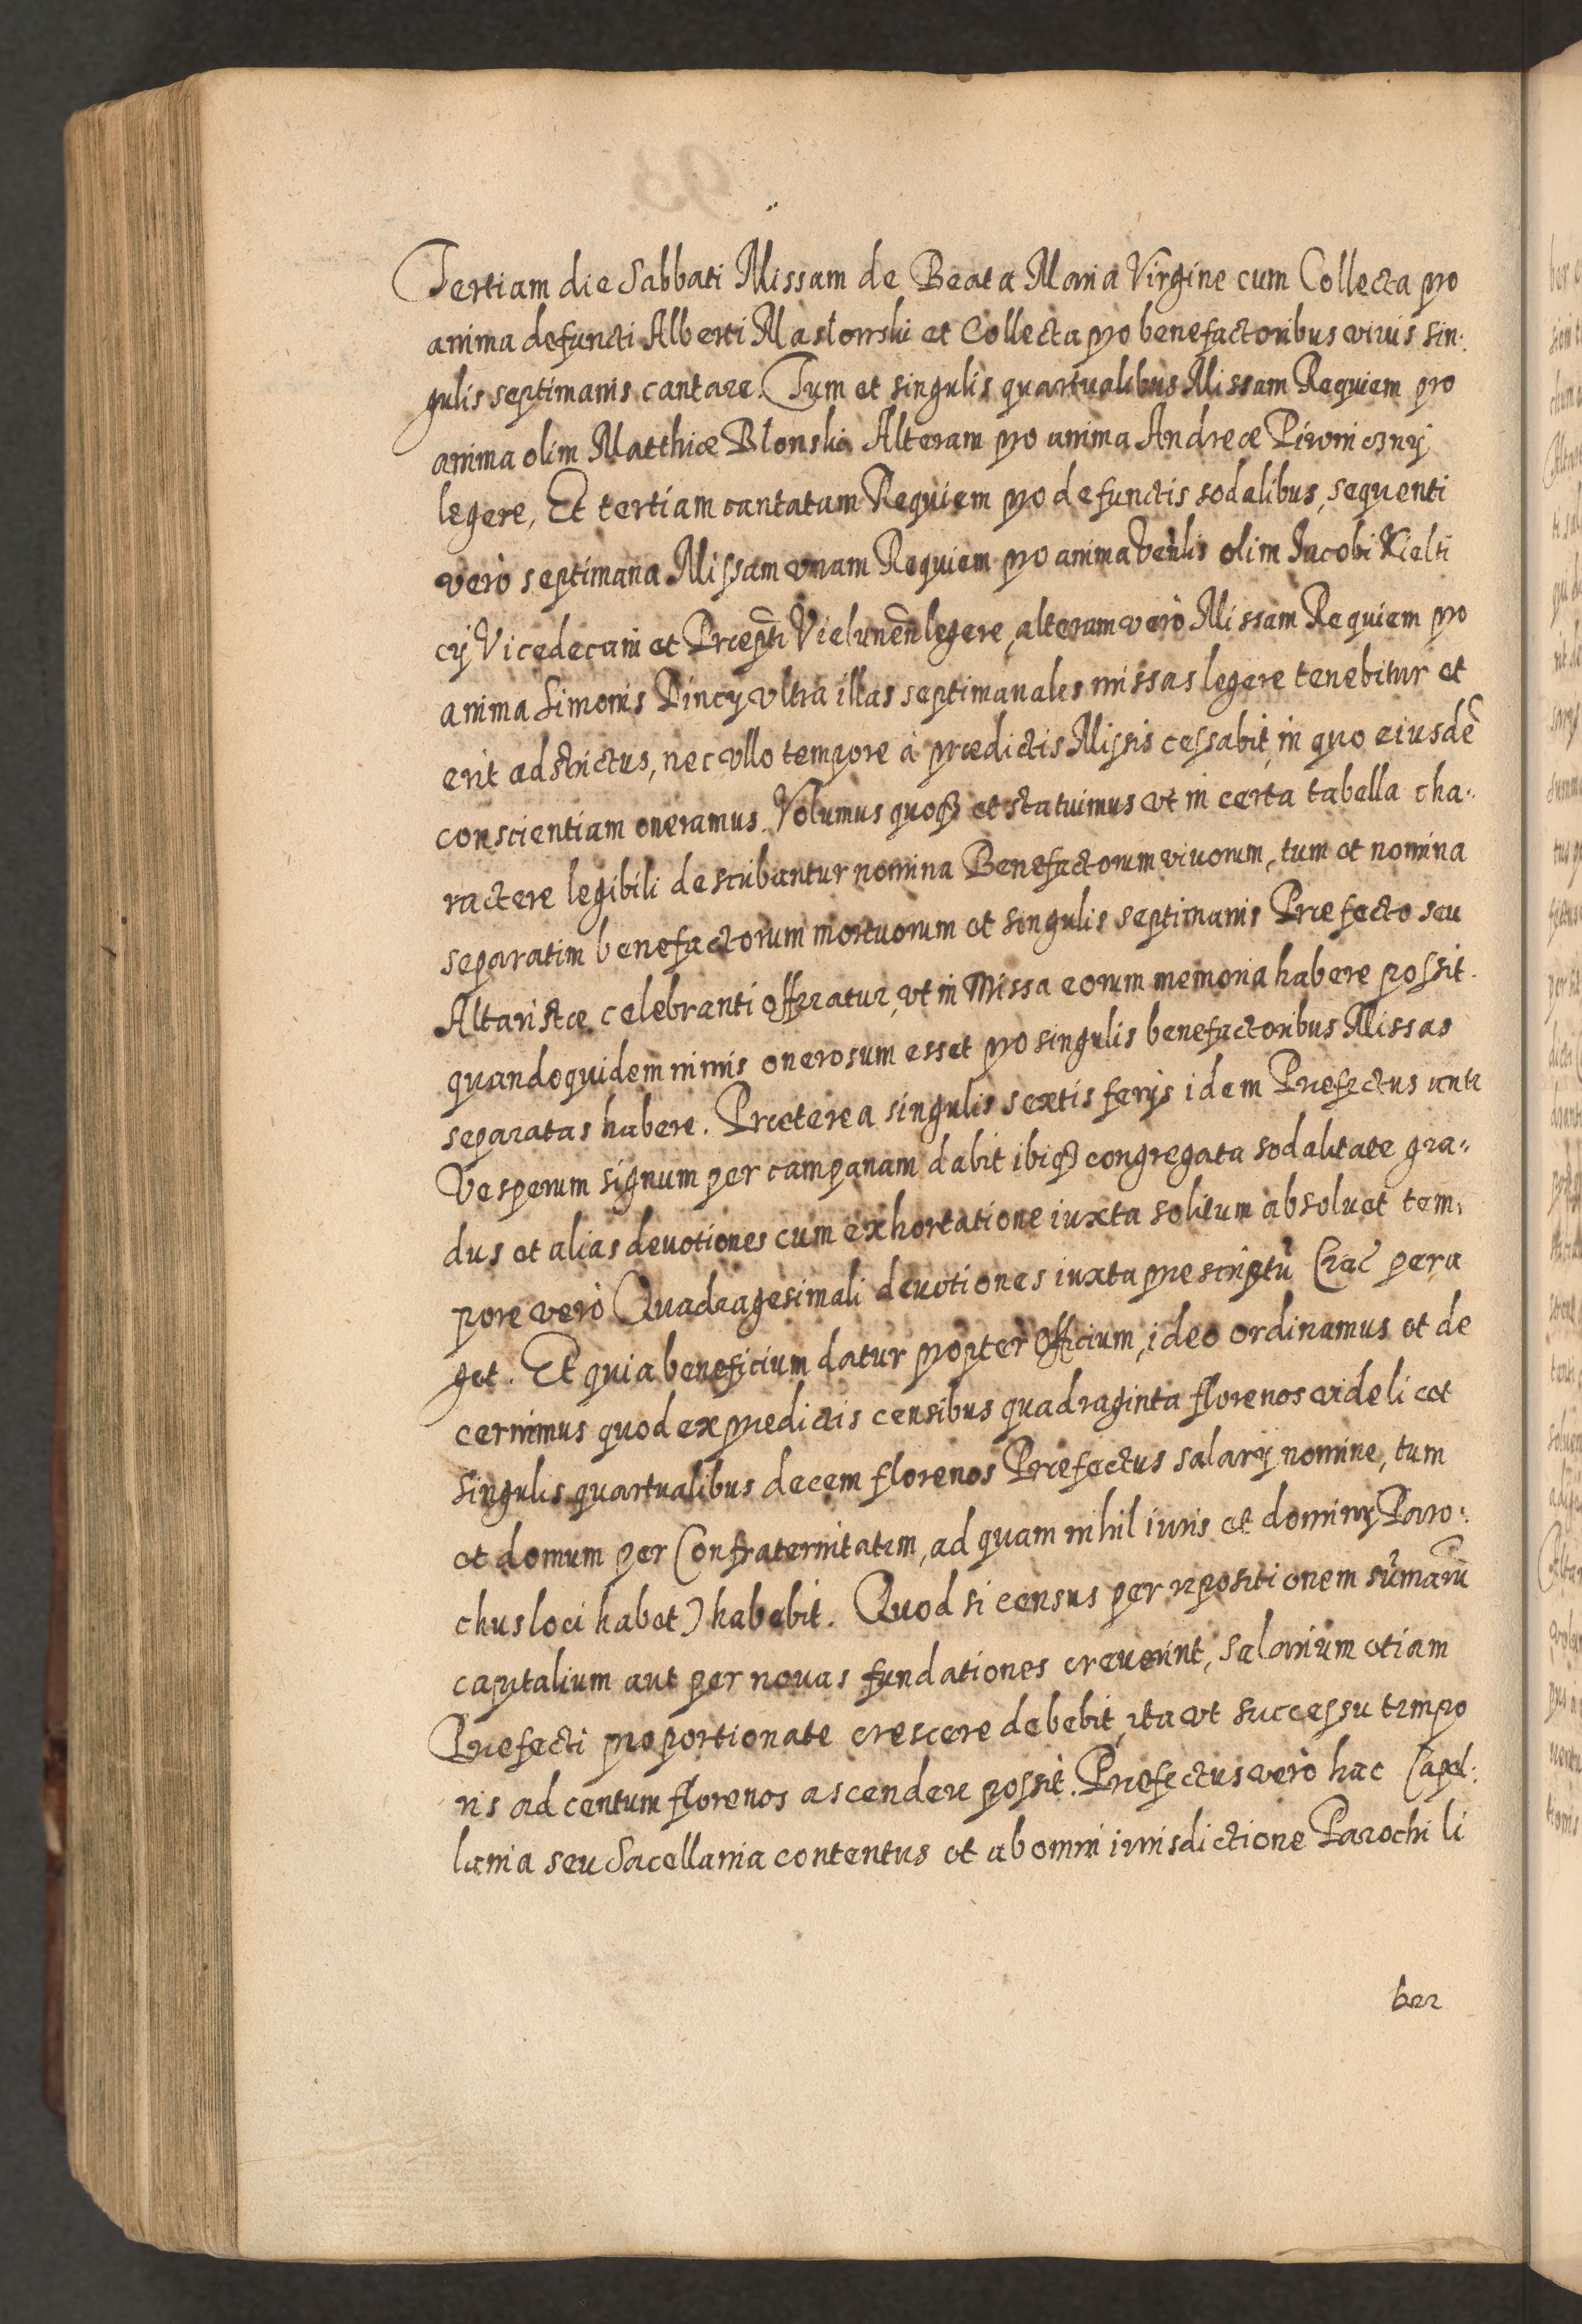 Tertiam die Sabbati Missam de Beata Maria Virgine cum Collecta pro
anima defuncti Alberti Maslowski et Collecta pro benefactoribus vivis sin-
gulis septimanis cantare. Tum et singulis quartualibus Missam Requiem pro
anima olim Matthiæ Blonski Alteram pro anima Andreæ Piwniczny
legere, Et tertiam cantatam Requiem pro defunctis sodalibus, sequenti
verò septimana Missam vnam Requiem pro anima Venlis olim Jacobi Kielti
cij Vicedecani et Præpti Vielunen legere, alteram verò Missam Requiem pro
anima Simonis Pincy vltra illas septimanales missas legere tenebitur et
erit adstrictus, nec vllo tempore à prædictis Missis cessabit, in quo eiusdē
conscientiam oneramus. Volumus quoqȝ et statuimus vt in certa tabella cha-
ractere legibili describantur nomina Benefactorum viuorum, tum et nomina
separatim benefactorum mortuorum et singulis septimanis Præfecto seu
Altaristæ celebranti offeratur, vt in Missa eorum memoria habere possit.
quandoquidem nimis onerosum esset pro singulis benefactoribus Missas
separatas habere. Præterea singulis sextis ferijs idem Præfectus ante
Vesperum signum per campanam dabit ibiqȝ congregata sodalitate gra-
dus et alias deuotiones cum exhortatione iuxta solitum absoluet tem-
pore verò Quadragesimali deuotiones iuxta præscriptū hac pera
get. Et quia beneficium datur propter Officium, ideo ordinamus et de
cernimus quod ex prædictis censibus quadraginta florenos videlicet
singulis quartualibus decem florenos Præfectus salarij nomine, tum
et domum per Confraternitatem, ad quam nihil iuris et dominij Paro-
chus loci habet) habebit. Quod si census per repositionem sūmarū
capitalium aut per nouas fundationes creuerint, salarium etiam
Præfecti proportionate crescere debebit, ita vt successu tempo
ris ad centum florenos ascendere possit. Præfectus verò hac Capel-
lania seu Sacellania contentus et ab omni iurisdictione Parochi li
ber